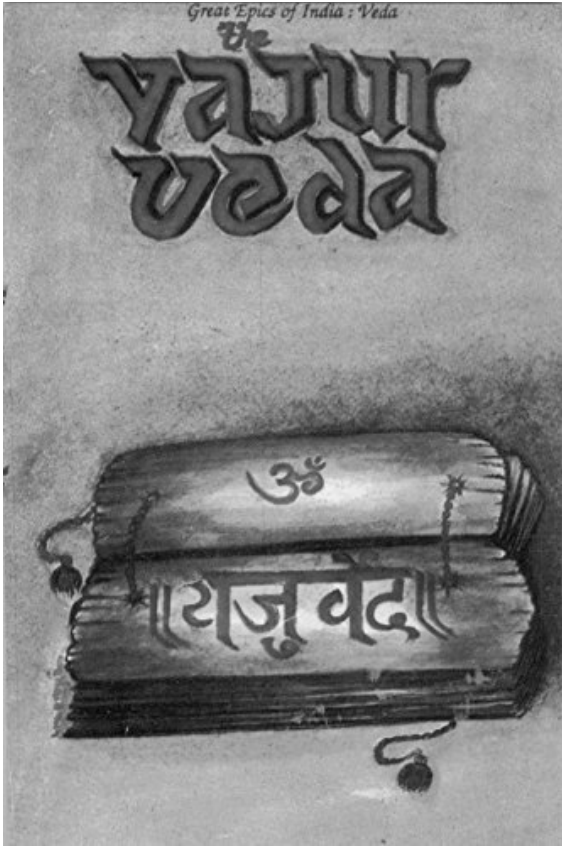 Great Epics of India : Veda
the
yajur
veda
ॐ
॥यजुर्वेद॥